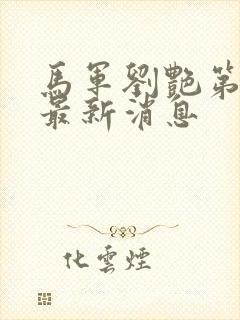 馬軍劉艷第
最新消息
化雲煙